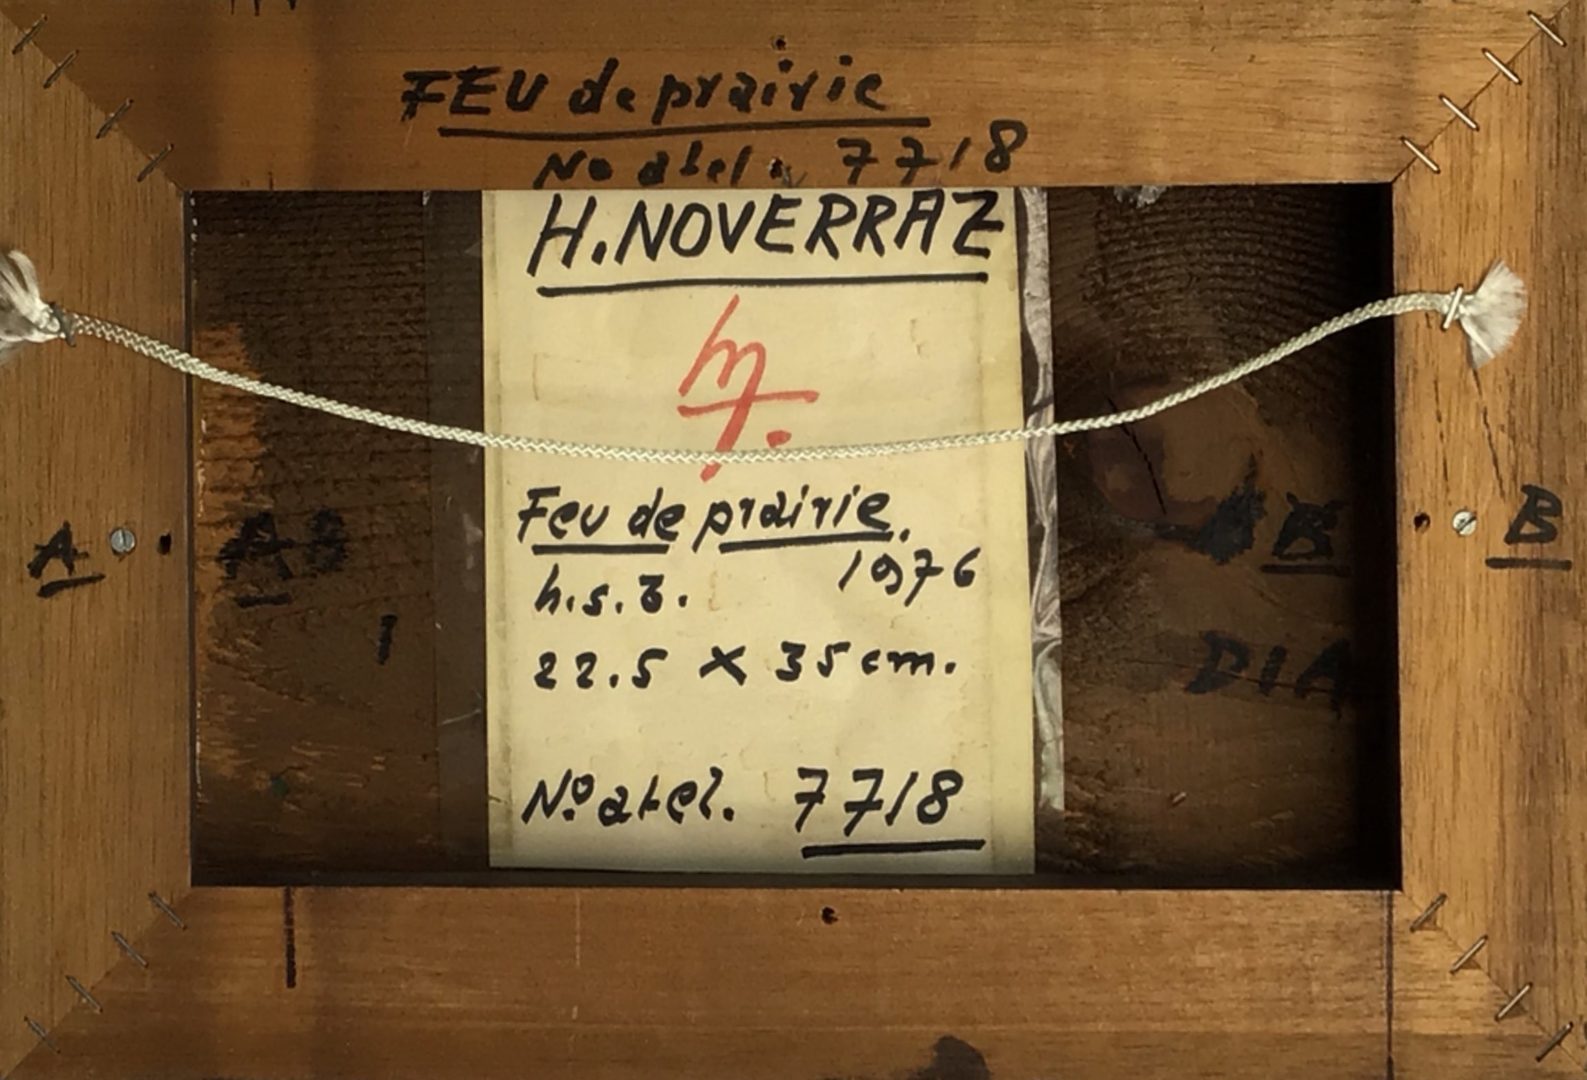 FEU de prairie
No atel. 7718
H. NOVERRAZ
Feu de prairie.
1976
h.s.t.
22.5 x 35 cm.
A
B
AB
B
1
DIA
No. atel. 7718